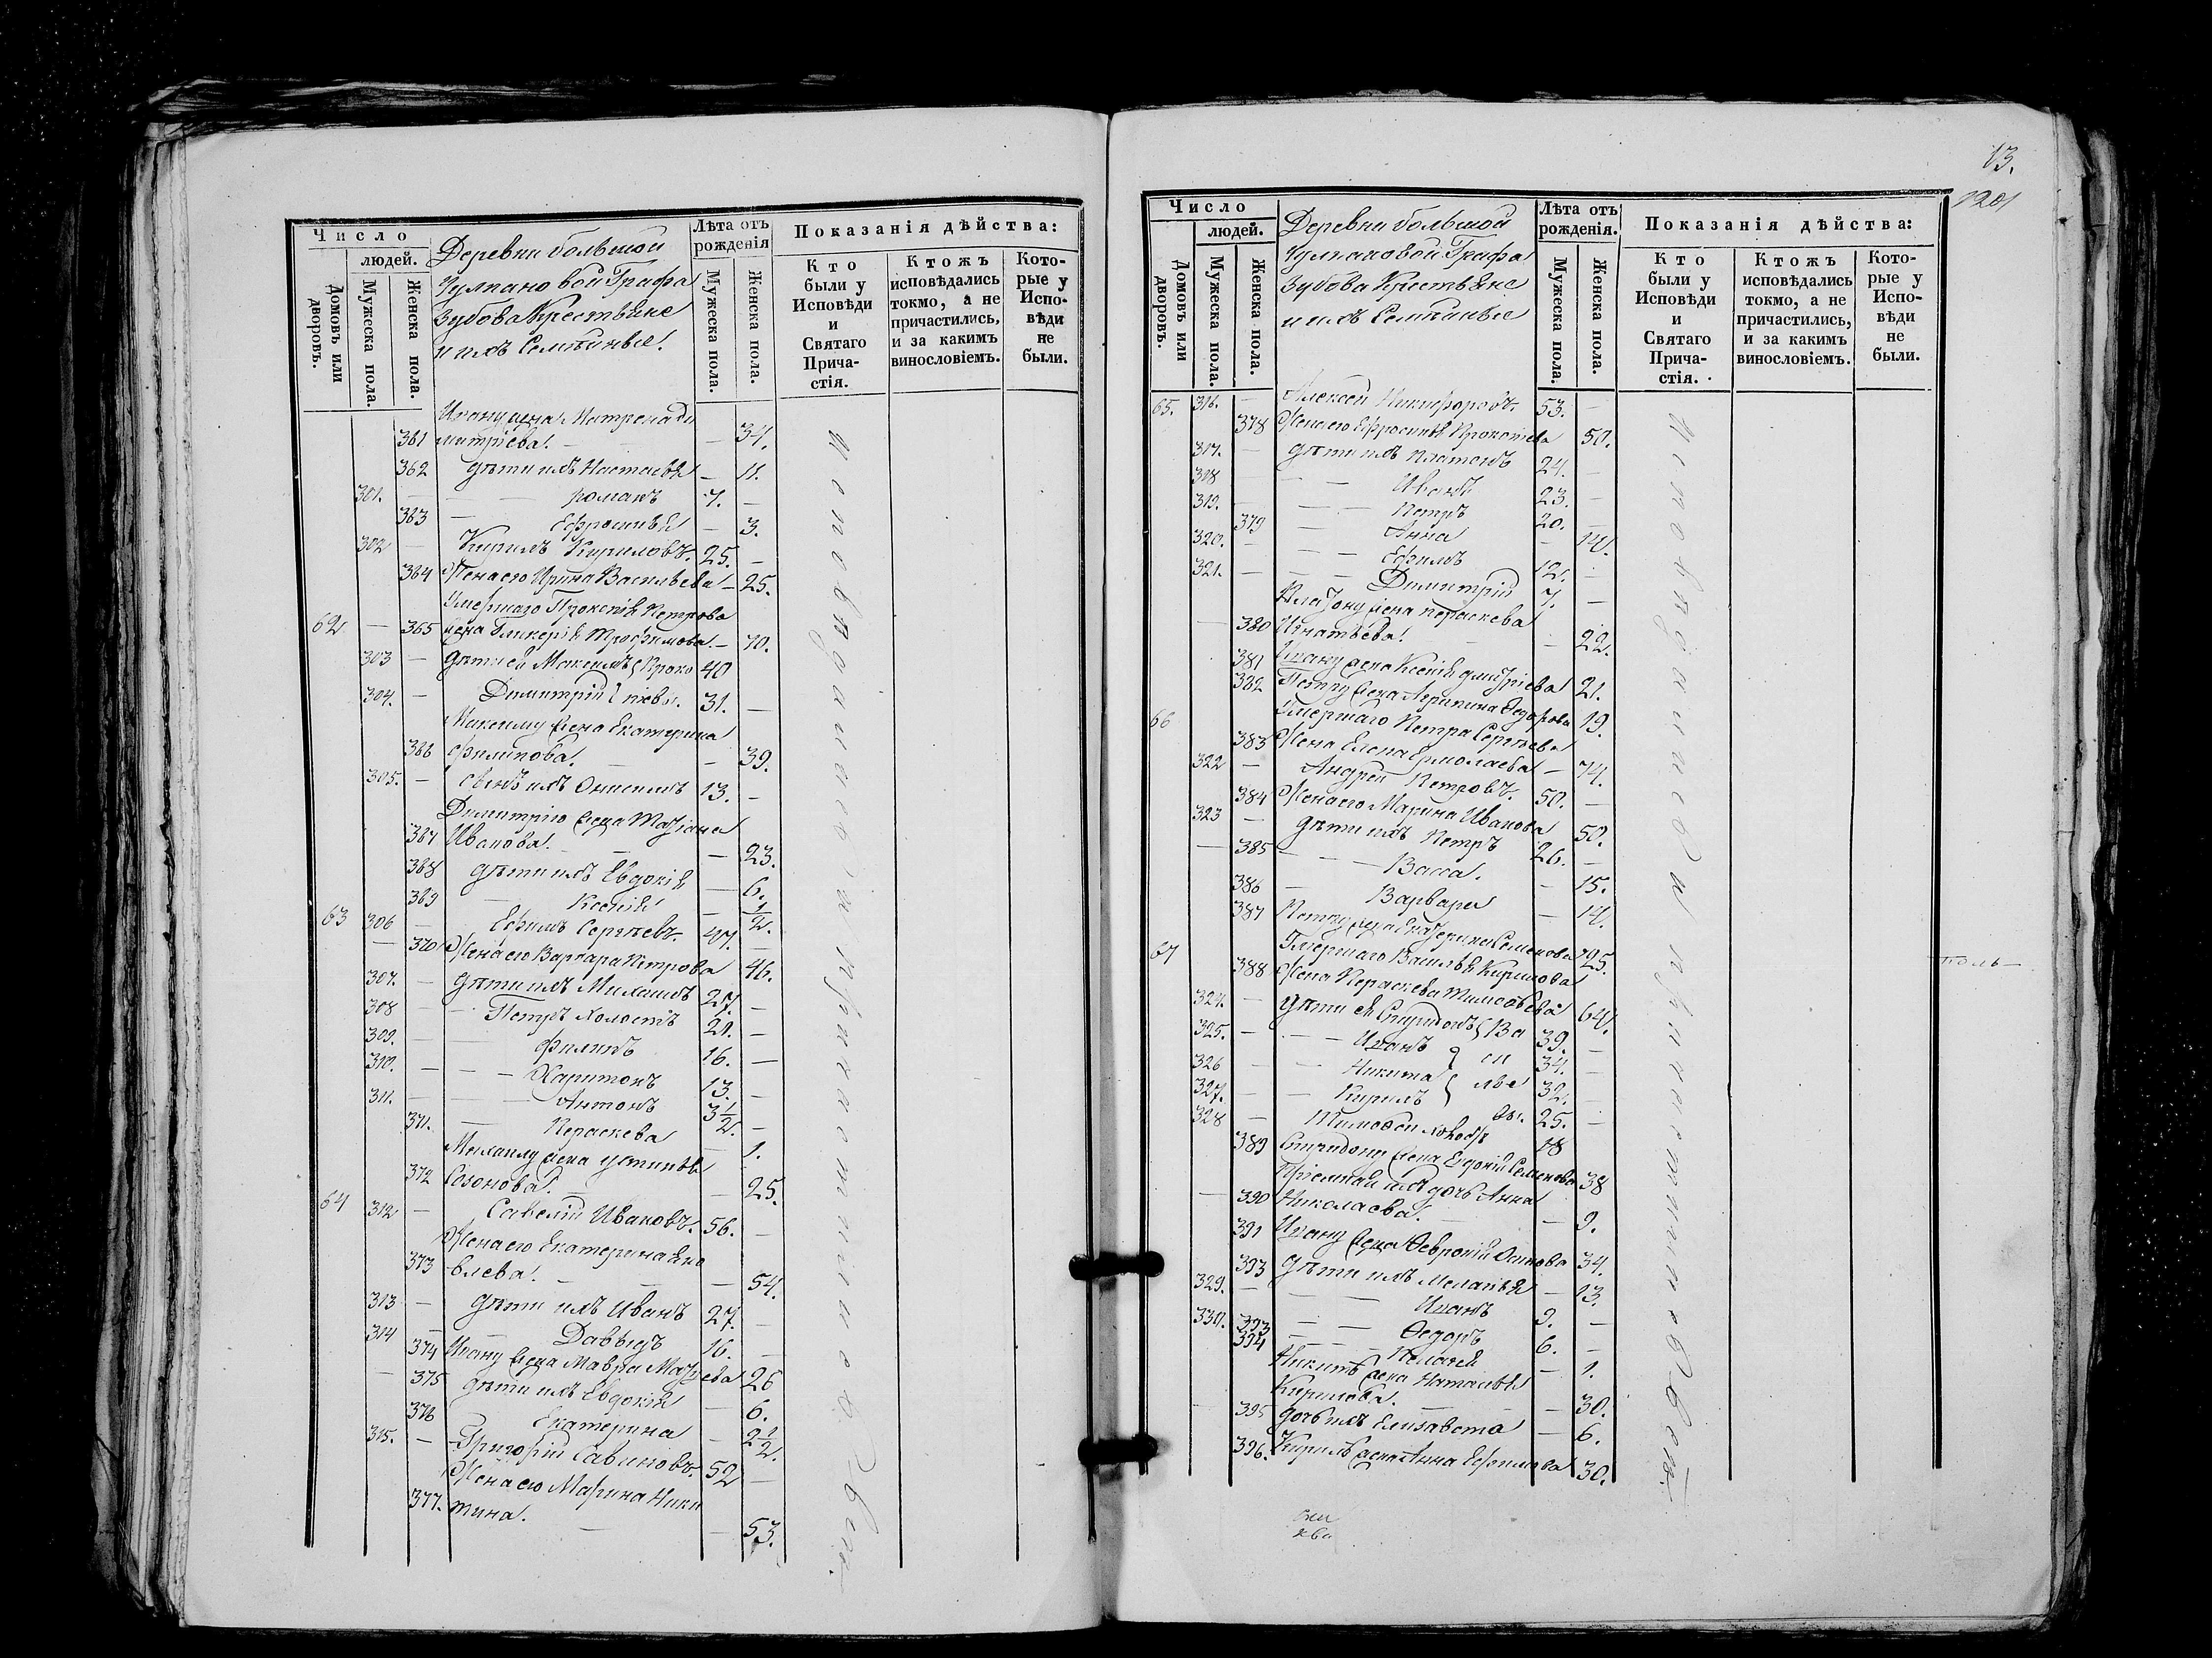 Число
людей.
Домовъ или дворовъ.
Мужеска пола.
Женска пола.
Деревни большой
Чулпановой Графа
Зубова Крестьяне
и ихъ Семѣйные.
Лѣта отъ рожденія
Мужеска пола.
Женска пола.
Показанія дѣйства:
Кто были у Исповѣди и Святаго Прича-стія.
Ктожъ исповѣдались токмо, а не причастились, и за какимъ винословіемъ.
Кото-рые у Испо-вѣди не были.
Ивану жена Матрена ди
361 митріева. — — 34.
362 дѣти ихъ Настасья — 11.
301. — — романъ 7. —
363 — Ефросинья — 3.
302 — Кирилъ Кириловъ. 25. —
364 Жена его Ирина Васильева — 25.
Умершаго Прокопія Петрова
62 — 365 жена Гликерія Трофимова. — 70.
303 — дѣти ея Максимъ Проко 40
304. — Димитрій піевы. 31. —
Максиму жена Екатерина
366 Филипова. — — 39.
305. — сынъ ихъ Онисимъ 13. —
Димитрію жена Татіана
367 Иванова. — — 23.
368 дѣти ихъ Евдокія — 6.
369 — Ксенія — 1/2.
63 306 — Ефимъ Сергѣевъ. 47. —
— 370 Жена его Варвара Петрова 46.
307. — дѣти ихъ Михаилъ 27. —
308 — — Петръ холостъ 21. —
309. — — Филипъ 16. —
310. — — — Харитонъ 13. —
311. — — — Антонъ 3 1/2. —
371. — Пераскева — 1.
Михаилу жена устинья
372 Созонова. — — 25.
64 312 — Савелій Ивановъ. 56. —
Жена его Екатерина Яко
373 влева. — — — 54.
313 — дѣти ихъ Иванъ 27. —
314 — — Давыдъ 16. —
374 Ивану жена Мавра Матвева 26
— 375 дѣти ихъ Евдокія — 6.
376 Екатерина — 2 1/2.
315. — Григорій Савиновъ. 52 —
Жена его Марина Ники
377. тина. — — 53.
Исповѣдались и причастились
13.
Число
людей.
Домовъ или дворовъ.
Мужеска пола.
Женска пола.
Деревни большой
Чулпановой Графа
Зубова Крестьяне
и ихъ Семѣйные
Лѣта отъ рожденія.
Мужеска пола.
Женска пола.
Показанія дѣйства:
Кто были у Исповѣди и Святаго Прича-стія.
Ктожъ исповѣдались токмо, а не причастились, и за какимъ винословіемъ.
Кото-рые у Испо-вѣди не были.
65. 316. — Алексей Никифоровъ. 53. —
378 Жена его Ефросинья Прокопева 50.
317. — дѣти ихъ Платонъ 24. —
318 — — Иванъ 23. —
319. — — Петръ 20. —
379 — Анна — 14.
320. — — — Ефимъ 12. —
321. — — — Димитрій 7. —
Платону жена пераскева
— 380 Игнатьева. — — 22.
381 Ивану жена Ксенія дмитріева 21.
382 Петру жена Агрипина Федорова 19.
66 Умершаго Петра Сергѣева
383 Жена Елена Ермолаева — 74.
322 — Андрей Петровъ. 50. —
384 Жена его Марина Иванова 50.
323 — дѣти ихъ Петръ 26. —
— 385 — — — Васса. — 15.
386 — Варвара — 14.
387 Петру жена Екатерина Семенова 25.
67 Умершаго Василья Кирилова
388 Жена Пераскева Тимофеева 64.
324. — дѣти ея Спиридонъ Ва 39. —
325. — — — Иванъ си 34. —
326 — — Никита лье 32. —
327. — — Кирилъ вы. 25. —
328 — Тимофей холостъ 18
389 Спиридону жена Евдокія Семенова 38
Пріемная ихъ дочь Анна
— 390 Николаева. — — 9.
391 Ивану жена Февронія Осипова 34.
393 дѣти ихъ Меланья — 13.
329. — — — Иванъ 9. —
330. 393 — — Федоръ 6. —
394 — — — Пелагея — 1.
Никитѣ жена Наталья
Кирилова. — — 30.
— 395 дочь ихъ Елизавета — 6.
396. Кирилѣ жена Анна Ефимова 30.
Исповѣдались и причастились